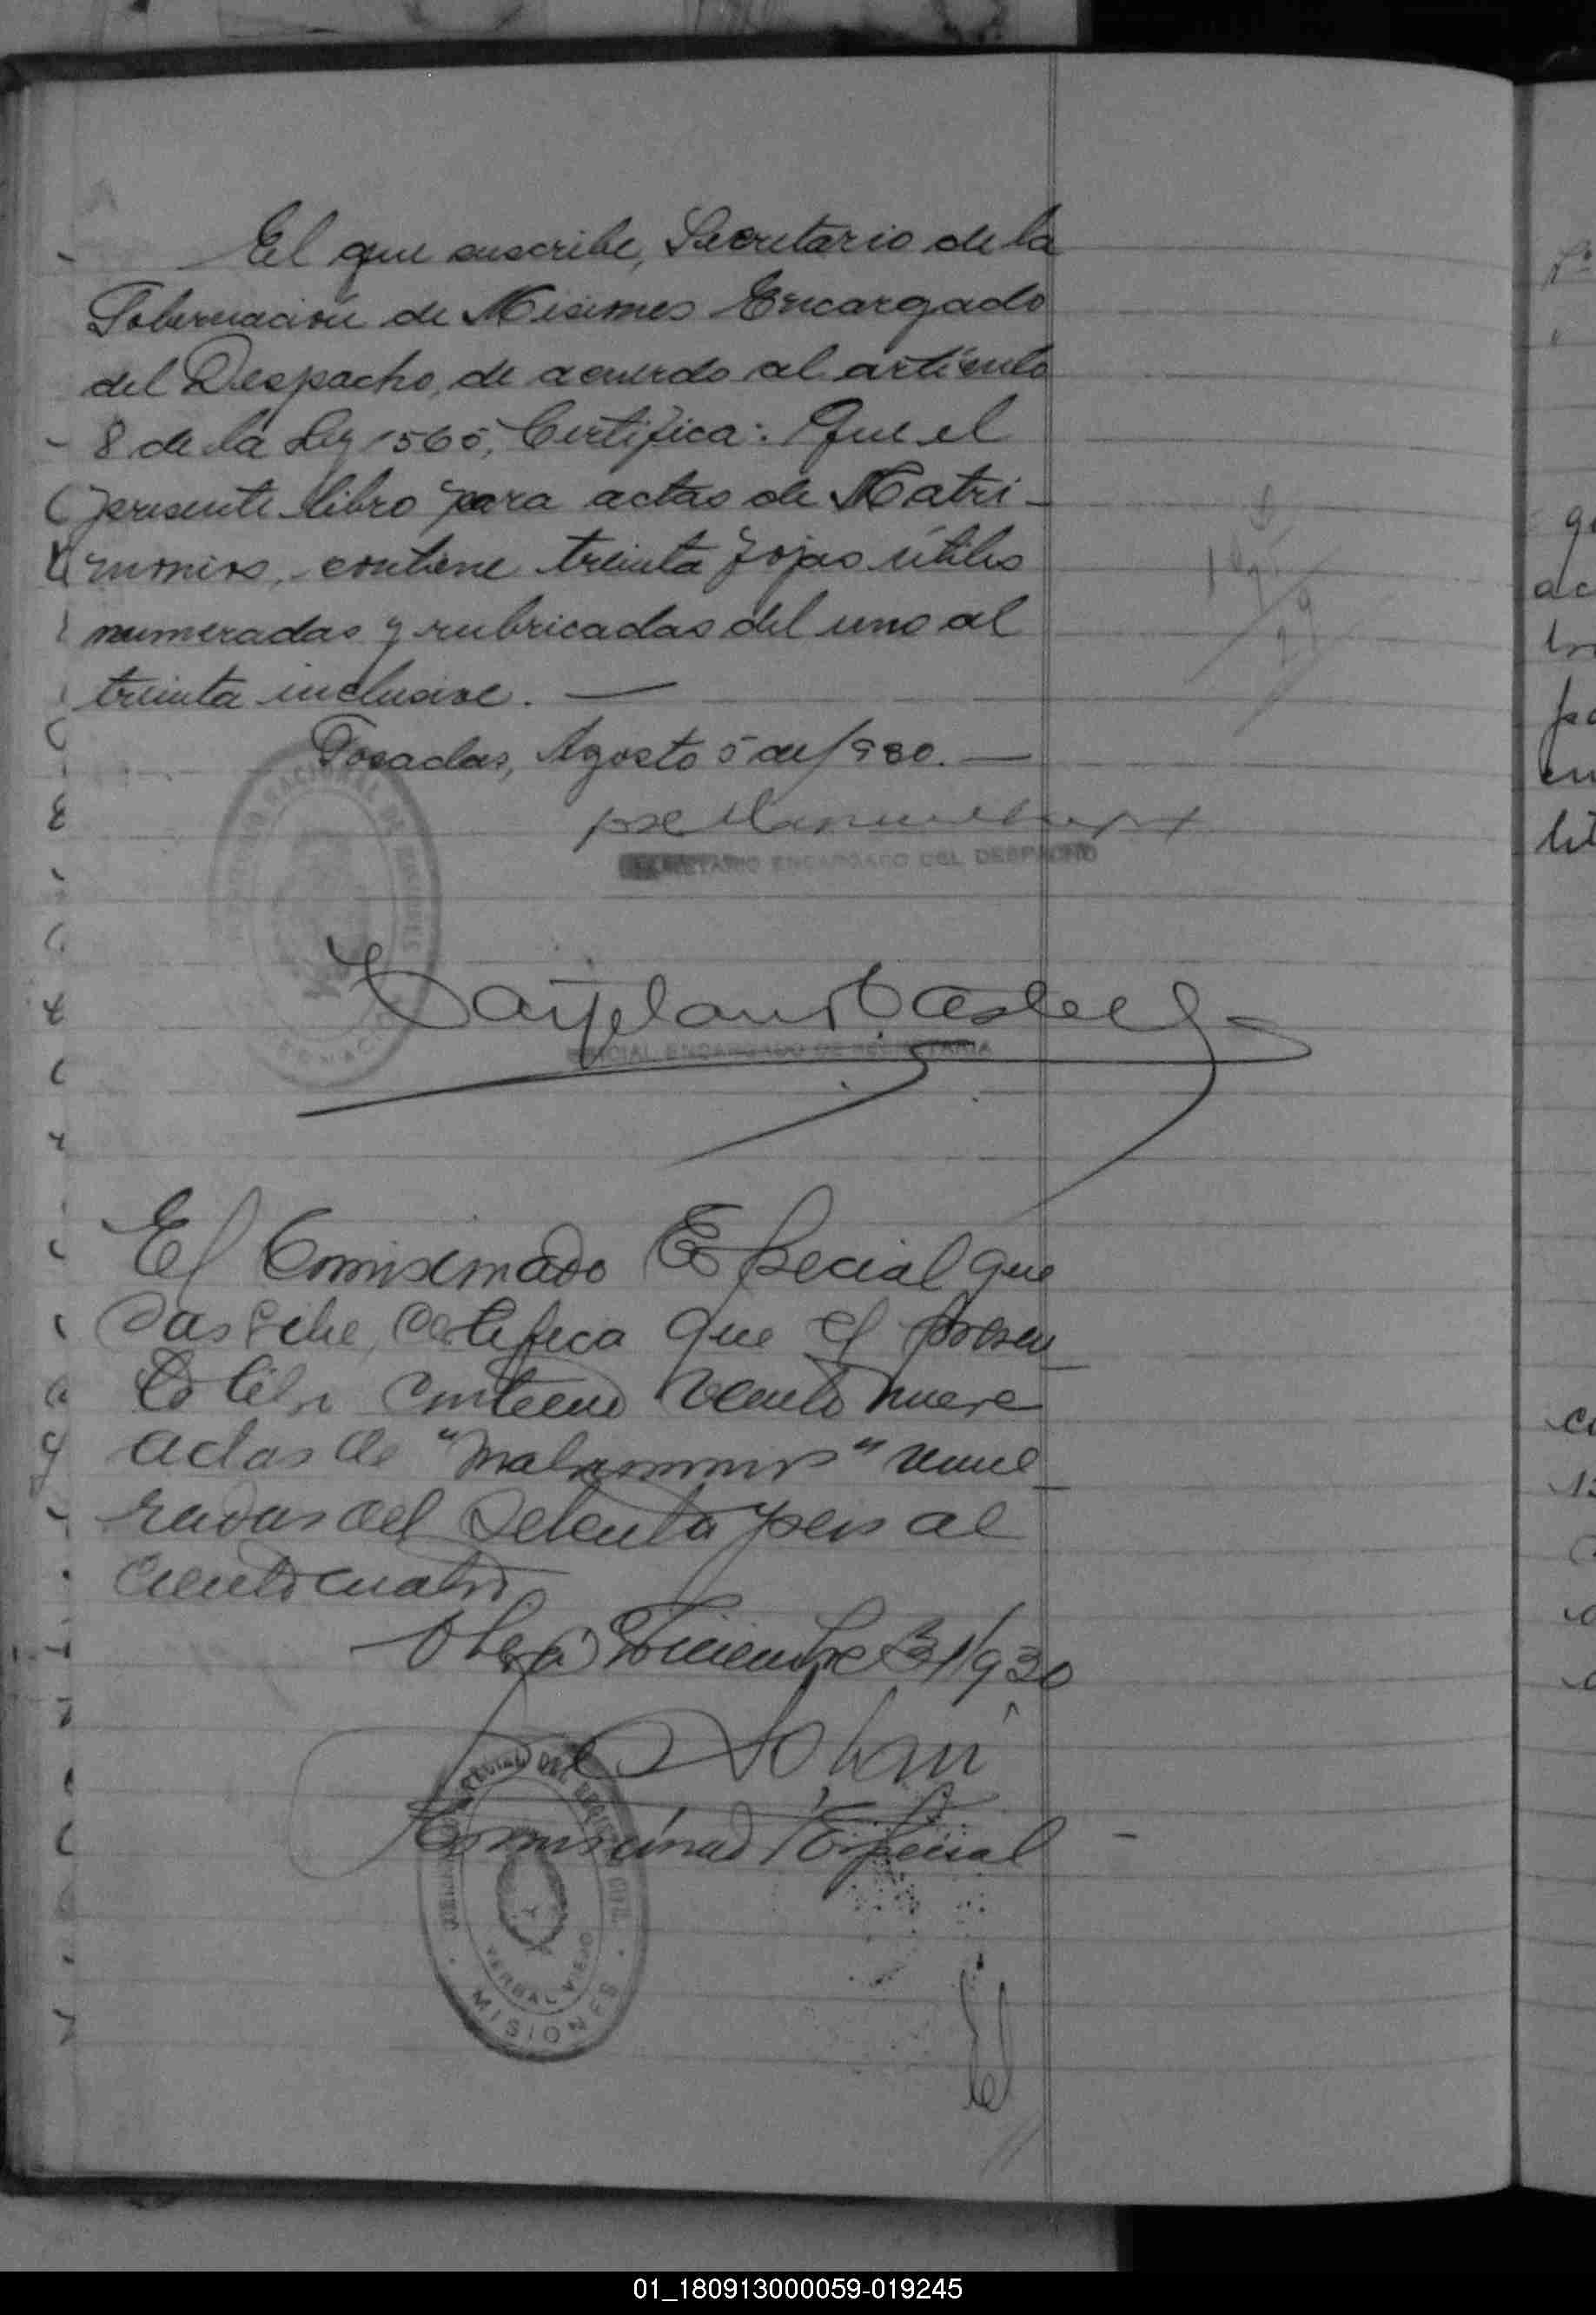 El que suscribe, Secretario de la
Gobernación de Misiones Encargado
del Despacho, de acuerdo al artículo
8 de la Ley 1565, Certifica: Que el
presente libro para actas de Matri-
monios, contiene treinta fojas útiles
numeradas y rubricadas del uno al
treinta inclusive. —
Posadas, Agosto 5 de 1930. —
SECRETARIO ENCARGADO DEL DESPACHO
OFICIAL ENCARGADO DE SECRETARIA
El Comisionado Especial que
suscribe, certifica que el presen
te libro contiene veinte nueve
actas de "Matrimonios" nume
radas del setenta y seis al
ciento cuatro
Oberá Diciembre 31/930
Comisionado Especial
ESPECIAL DEL REGISTRO CIVIL
YERBAL VIEJO
MISIONES
01_180913000059-019245